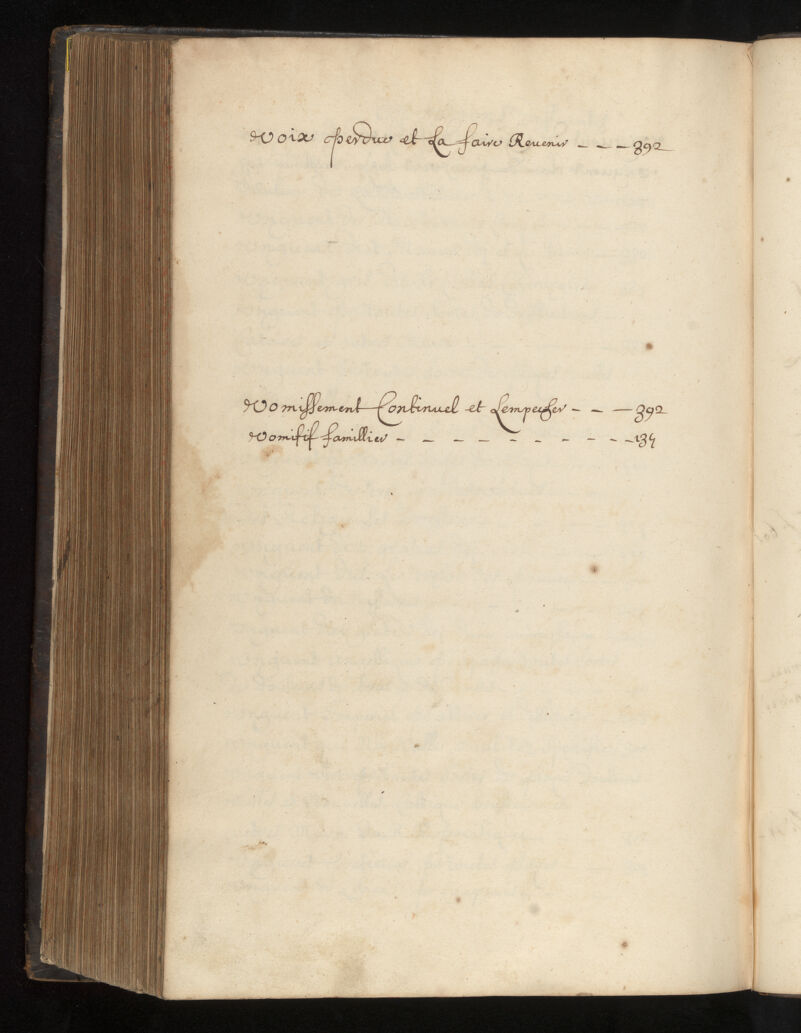 Voix perdue et La faire Revenir - - - 392
Vomissement Continuel et Lempecher - - - 392
Vomitif famillier - - - - - - - - - - -134